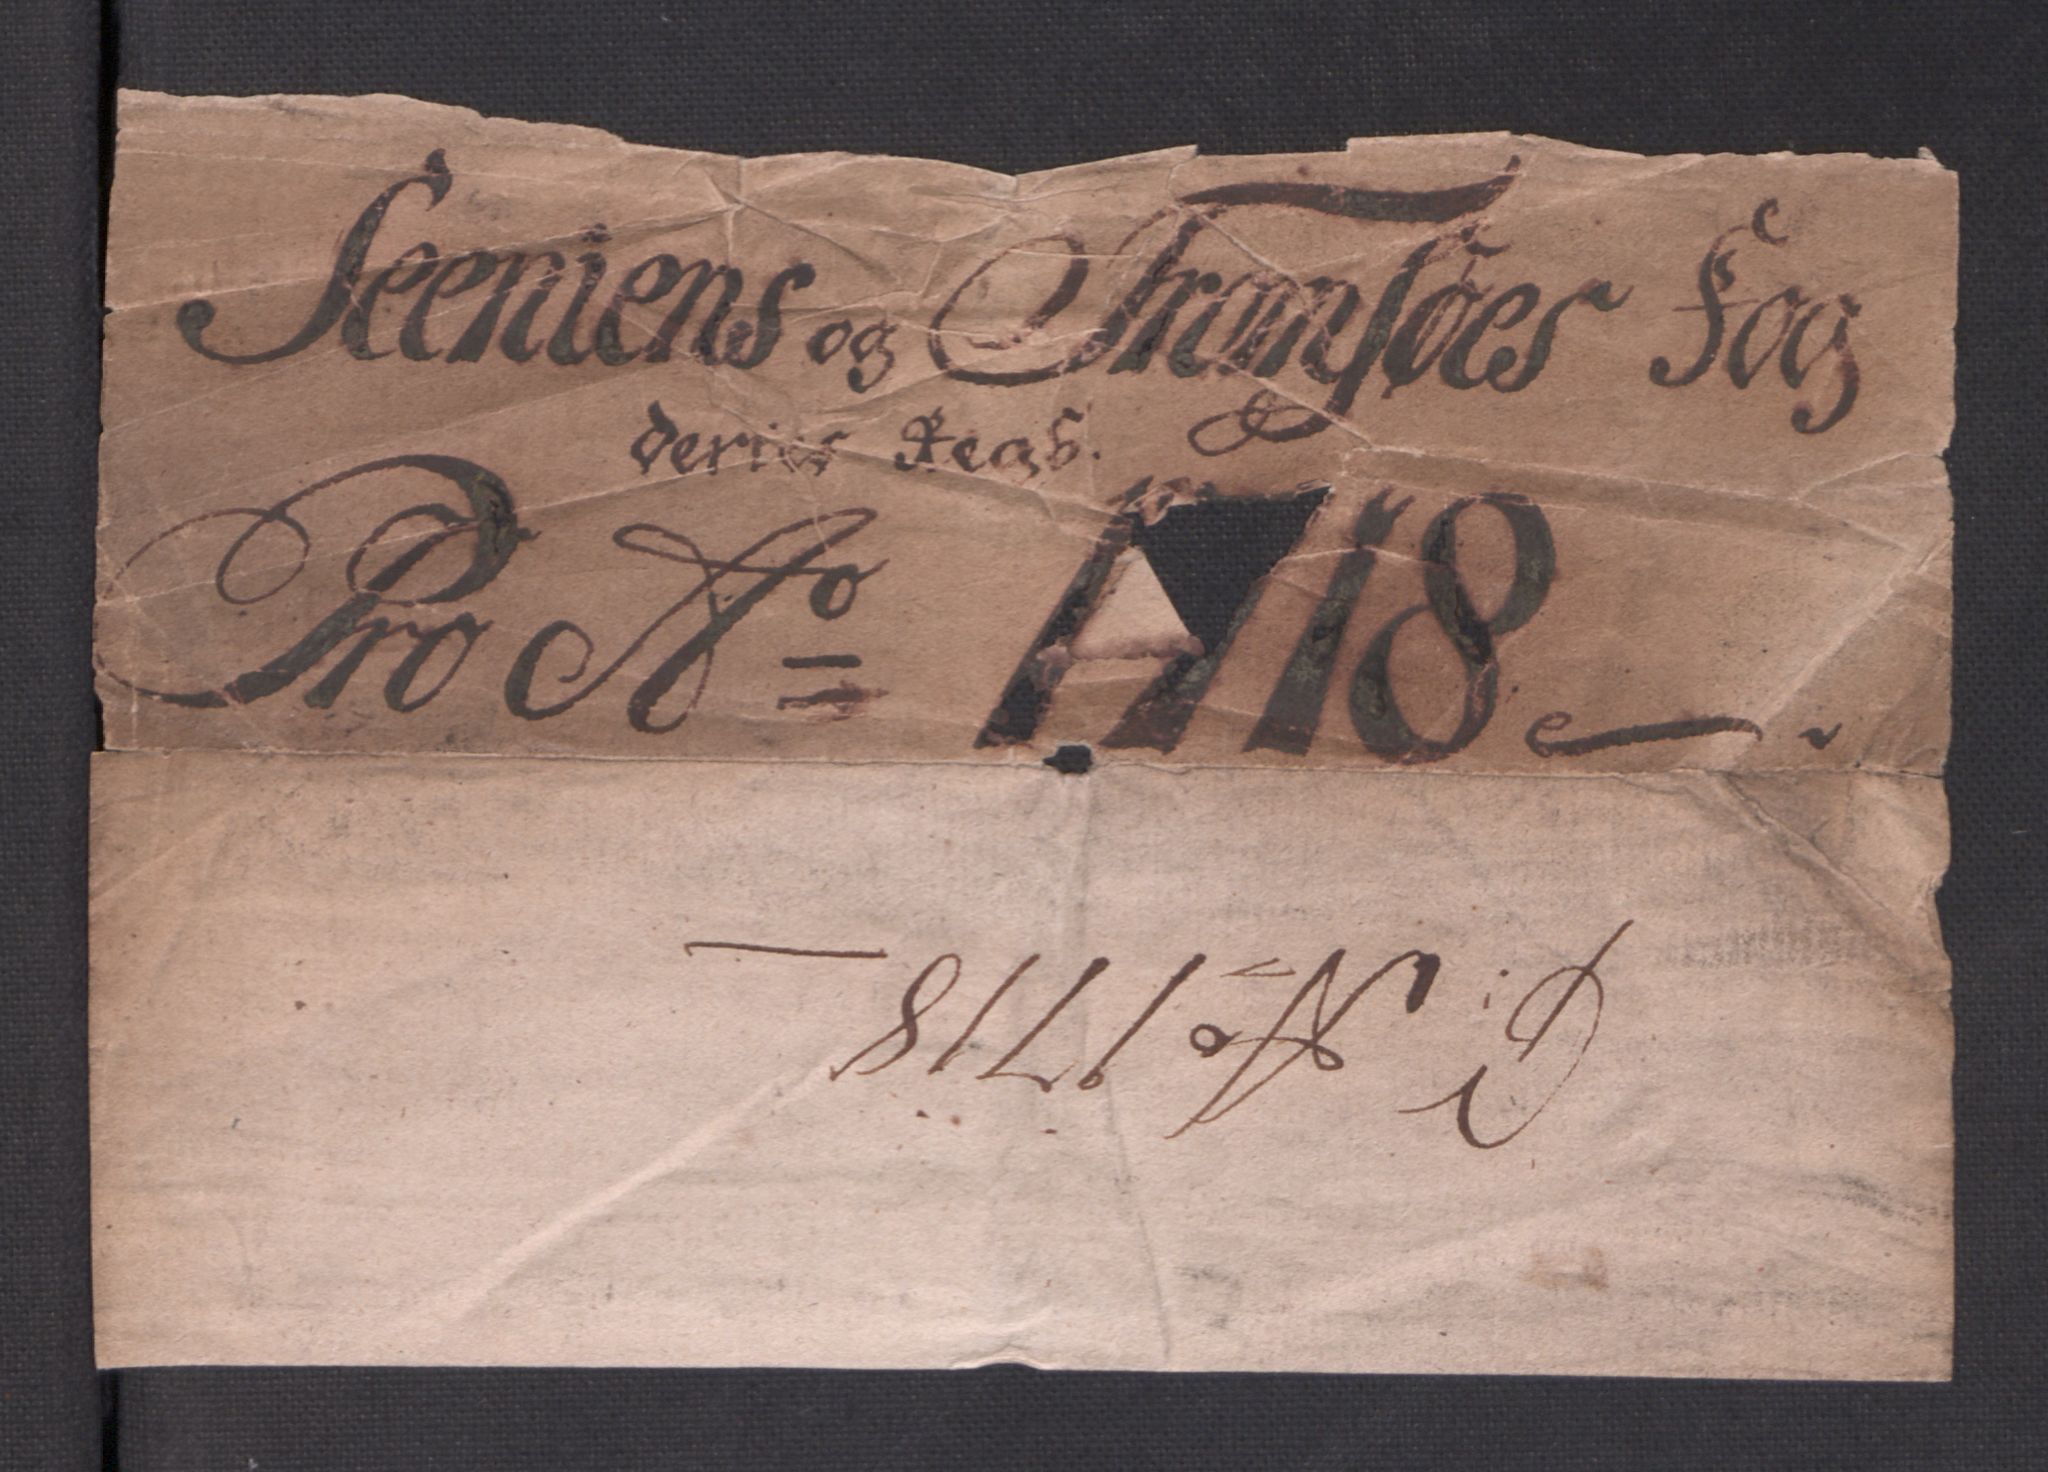 Seeniens og Tromsøes Fog
deries Regs.
Pro Ao 1718
P: Ao 1718